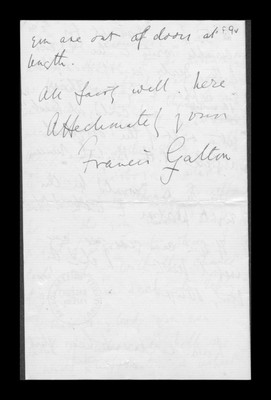 Em are out of doors at
length.
All fairly well. here
Affectionately yours
Francis Galton